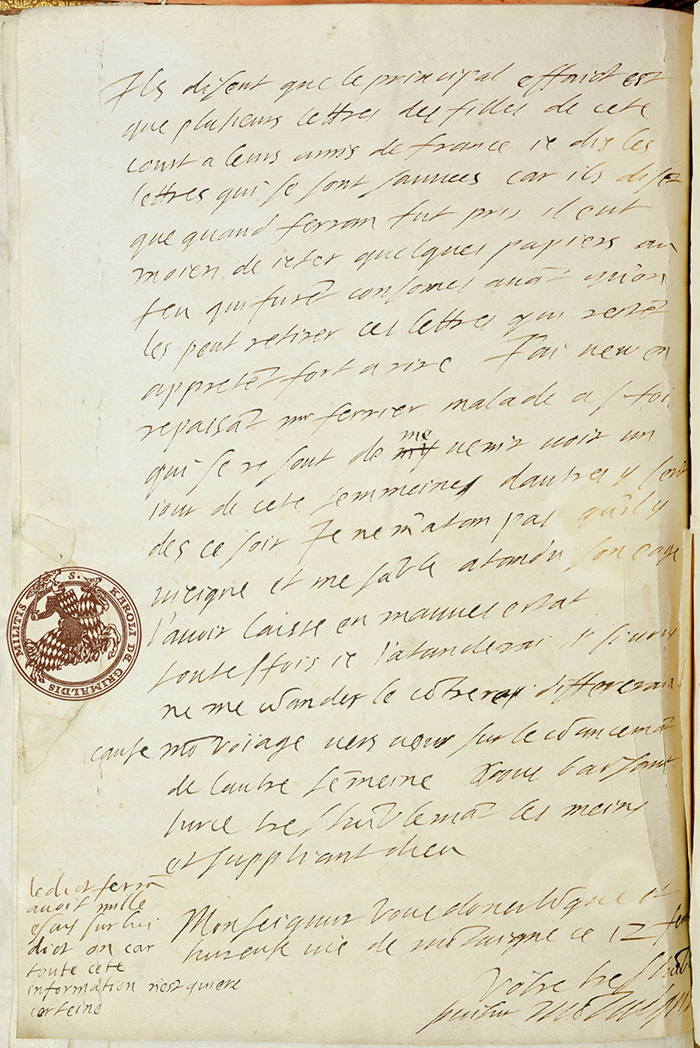 Ils disent que le principal effaict est
que plusieurs lettres des filles de cete
court a leurs amis de france ie dis les
lettres qui se sont sauuees car ils disēt
que quand ferran fut pris il eut
moien de ieter quelques papiers au
feu qui furēt consomes auāt qu'on
les peut retirer ces lettres qui restēt
appretēt fort a rire J'ai ueu en
repassāt mr ferrier malade a s te foi
qui se resout de me uenir uoir un
iour de cete semmeine d'autres y serōt
des ce soir Je ne m'atan pas qu'il y
uieigne et me sāble atandu son eage
l'auoir laisse en mauues estat
toutesfois ie l'atanderai si
ne me cōmander le cōtrere differerai
cause mō voiage uers uous sur le cōmancemāt
de l'autre semeine Vous baisant
sur ce tres humblemāt les meins
et suppliant dieu
Monseigneur Vous doner lōgue et
hureuse uie de mōtaigne ce 12 feu
Votre tres hūble
seruitur Mōtaigne
ledict ferrā
auoit mille
escus sur lui
dict on car
toute cete
information n'est guiere
certeine
S. KAROLI DE GRIMALDIS MILITIS